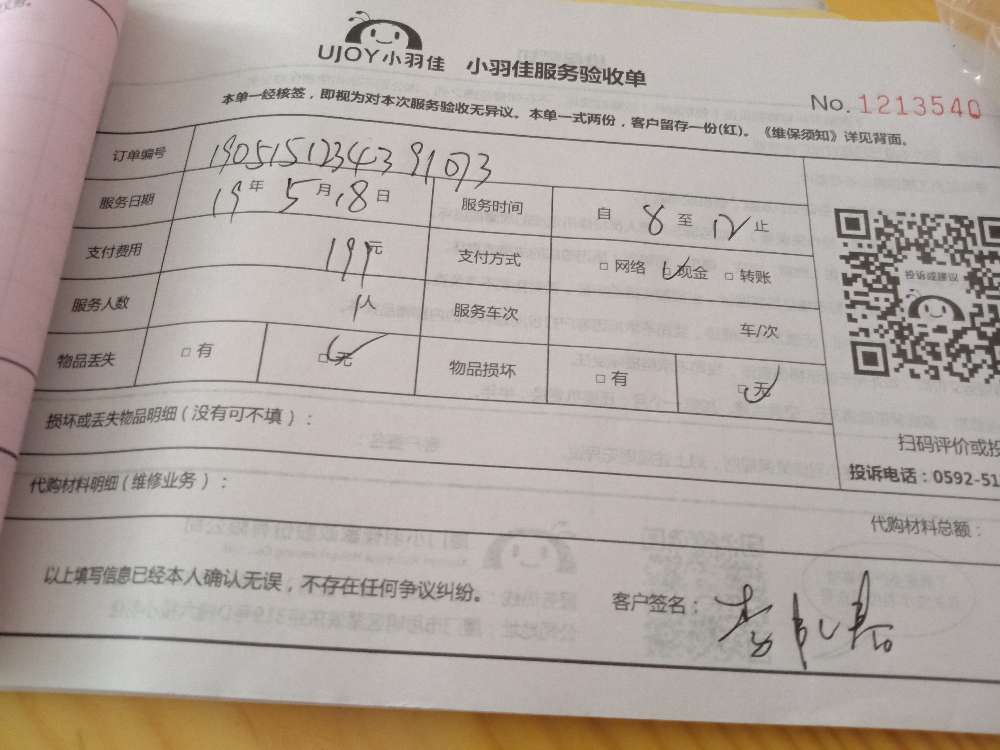 UJOY小羽佳 小羽佳服务验收单
No. 1213540
本单一经核签，即视为对本次服务验收无异议。本单一式两份，客户留存一份(红)。《维保须知》详见背面。
订单编号 190515123439 1073
服务日期 19年 5月18日 服务时间 自 8 至 12 止
支付费用 199元 支付方式 □ 网络 □ 现金 □ 转账
投诉或建议
服务人数 1人 服务车次 车/次
物品丢失 □ 有 □ 无 物品损坏 □ 有 □ 无
损坏或丢失物品明细（没有可不填）：
扫码评价或投
投诉电话：0592-51
代购材料明细（维修业务）：
代购材料总额：
以上填写信息已经本人确认无误，不存在任何争议纠纷。
客户签名：